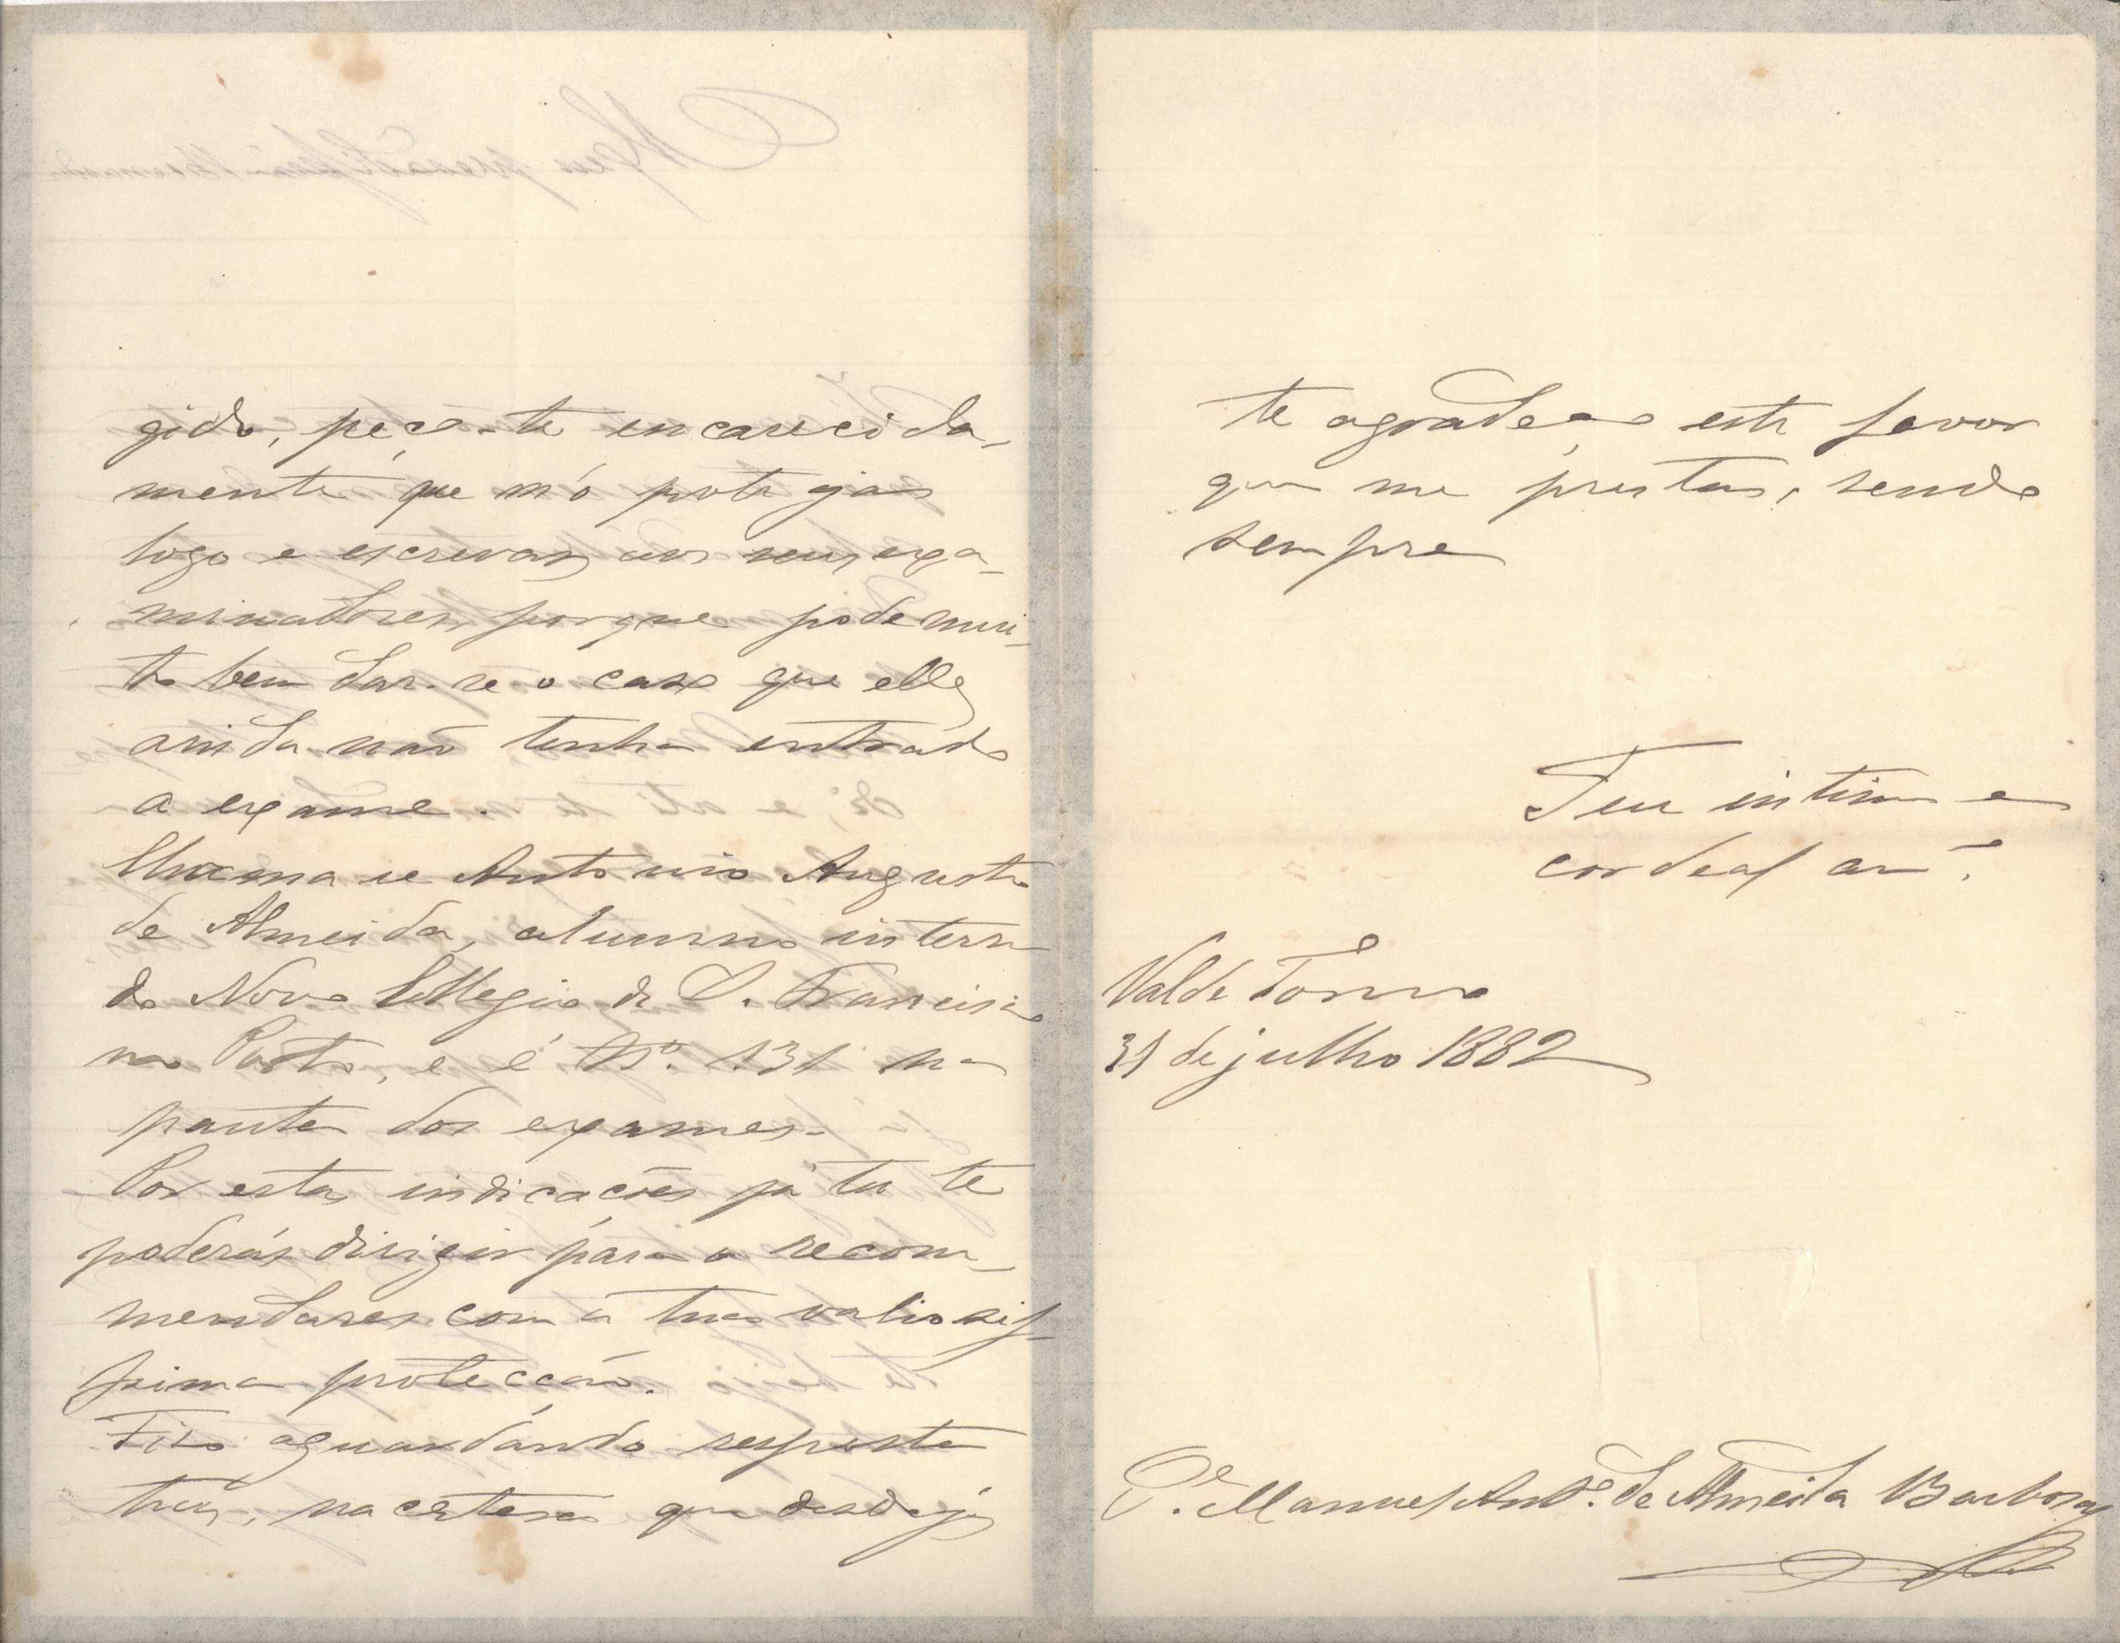 gido, peço-te encarecida-
mente que m'o protejas
logo e escrevas aos seus exa-
minadores, porque pode mui-
to bem dar-se o caso que elle
ainda não tenha entrado
a exame.
Chama se Antonio Augusto
de Almeida, alumno interno
do Novo Collegio de S. Francisco
no Porto, e é Nº. 131 na
pauta dos exames.
Por estas indicações já tu te
poderás dirigir para o recom-
mendares com a tua valiosis-
sima protecção.
Fico aguardando resposta
tua, na certesa que desde já
te agradeço este favor
que me prestas, sendo
sempre
Teu intimo e
cordeal amº.
Val de Torno
31 de julho 1882
P.e Manuel Antº. de Almeida Barbosa